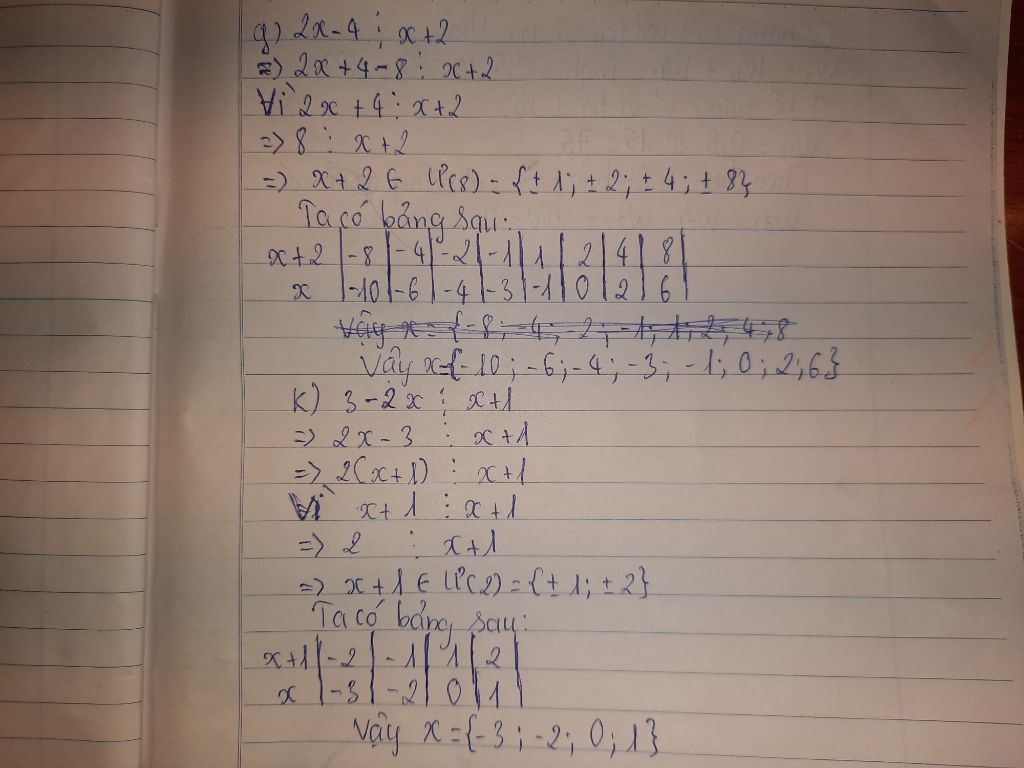 g) 2x-4 ⋮ x+2
=> 2x+4-8 ⋮ x+2
Vì 2x+4 ⋮ x+2
=> 8 ⋮ x+2
=> x+2 ∈ Ư(8) = {±1; ±2; ±4; ±8}
Ta có bảng sau:
x+2 | -8 | -4 | -2 | -1 | 1 | 2 | 4 | 8 |
x | -10 | -6 | -4 | -3 | -1 | 0 | 2 | 6 |
Vậy x = {-8; -4; -2; -1; 1; 2; 4; 8
Vậy x={-10; -6; -4; -3; -1; 0; 2; 6}
k) 3-2x ⋮ x+1
=> 2x-3 ⋮ x+1
=> 2(x+1) ⋮ x+1
Vì x+1 ⋮ x+1
=> 2 ⋮ x+1
=> x+1 ∈ Ư(2) = {±1; ±2}
Ta có bảng sau:
x+1 | -2 | -1 | 1 | 2 |
x | -3 | -2 | 0 | 1 |
Vậy x={-3; -2; 0; 1}